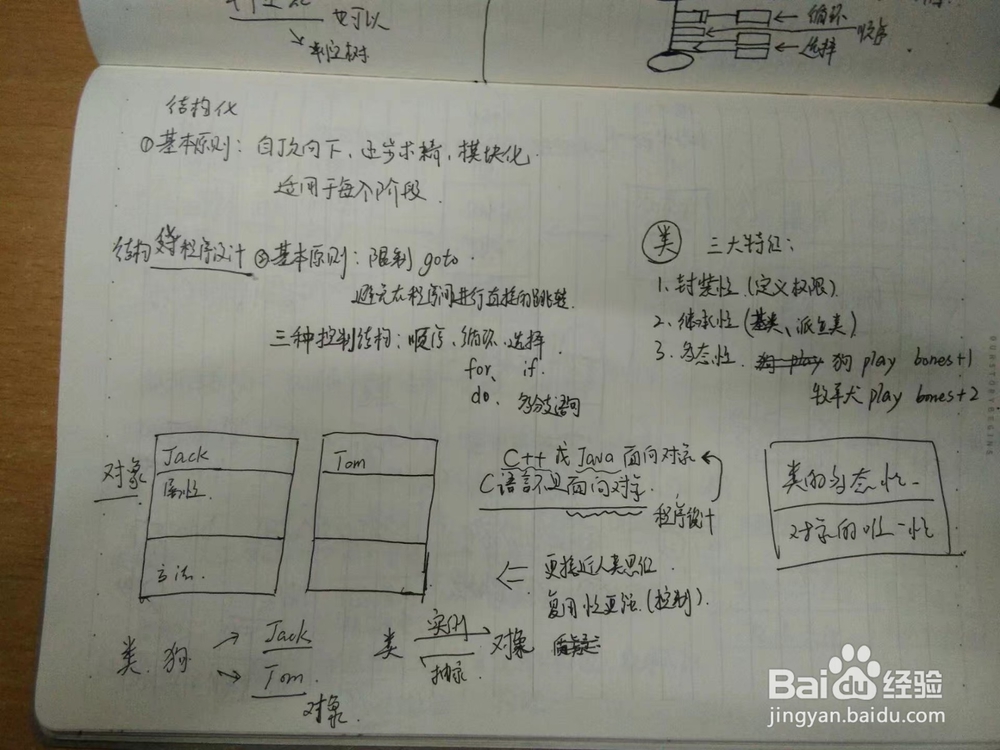 也可以
判定树
循环
顺序
选择
结构化
①基本原则：自顶向下、逐步求精，模块化.
适用于每个阶段.
结构 程序设计 ②基本原则：限制 goto.
避免在程序间进行直接的跳转.
三种控制结构：顺序、循环、选择.
for、 if.
do、 多分支语句
类 三大特征：
1. 封装性（定义权限）.
2. 继承性（基类、派生类）
3. 多态性. 狗 play bones+1
牧羊犬 play bones+2
对象
Jack
属性.
方法.
Tom
C++ 或 Java 面向对象
C语言不是面向对象.
程序设计
更接近人类思维.
复用性更强.（控制）.
类的多态性
对象的唯一性
类. 狗 → Jack
→ Tom.
对象.
类 实例 对象
抽象.
Baidu经验
jingyan.baidu.com